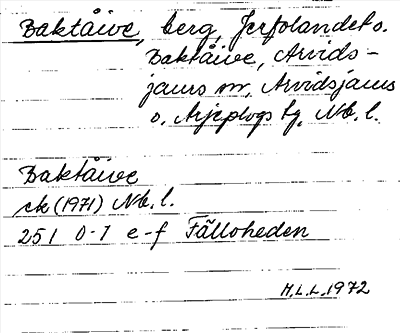 Baktåive, berg, Jerfolandet o.
Baktåive, Arvids-
jaurs sn, Arvidsjaurs
o. Arjeplogs tg, Nb. l.
Baktåive
ek (1971) Nb. l.
25 I 0-1 e-f Fälloheden
H.L.L. 1972